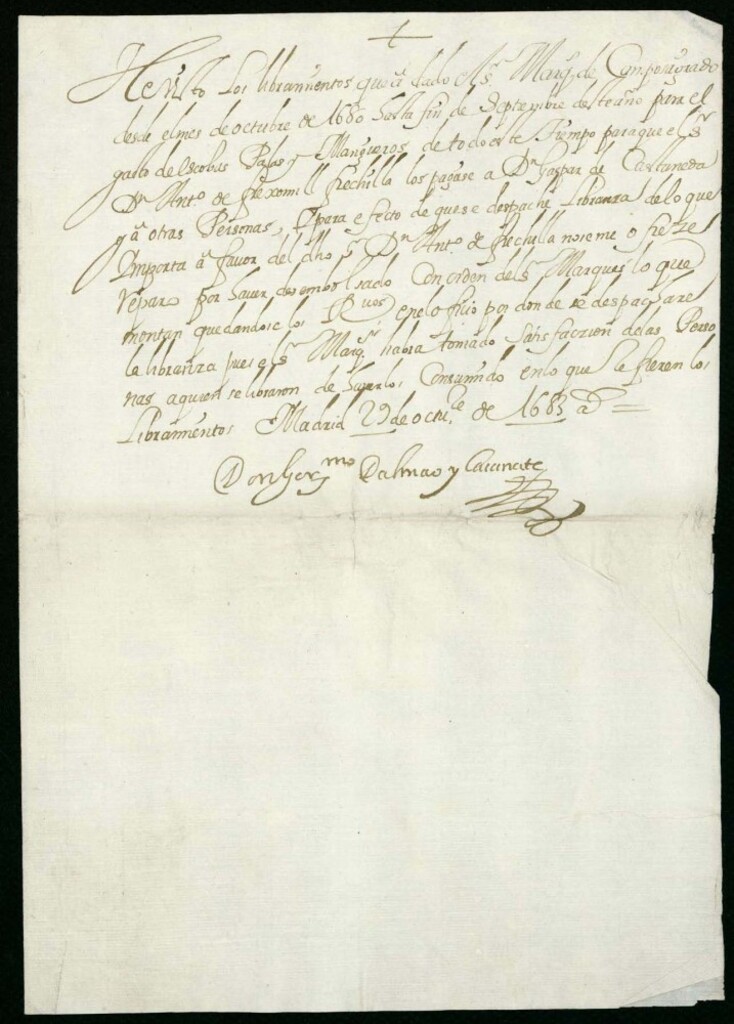 +
He visto Los libramientos que a dado el Sr Marqs. de Camposagrado
desde el mes de octubre de 1680 hasta fin de Septiembre deste año para el
gasto de escobas Pajas y Mangueros de todo este tiempo para que el Sr
Dn Anto. de Frechilla los pagase a Dn Gaspar de Castañeda
y a otras Personas, y para efecto de que se despache Libranza de lo que
Importa a favor del dho Sr Dn Anto. de Frechilla no se me ofreze
reparo por haver desembolsado Con orden del Sr Marques lo que
montan quedandose los en el ofizio por donde se despachare
la libranza pues el Sr Marqs. habra tomado Satisfaczion de las Perso
nas a quien se libraron de havarlos Consumido en lo que refieren los
Libramientos Madrid 29 de octue. de 1683 as =
Don Germo Dalmao y Casanate